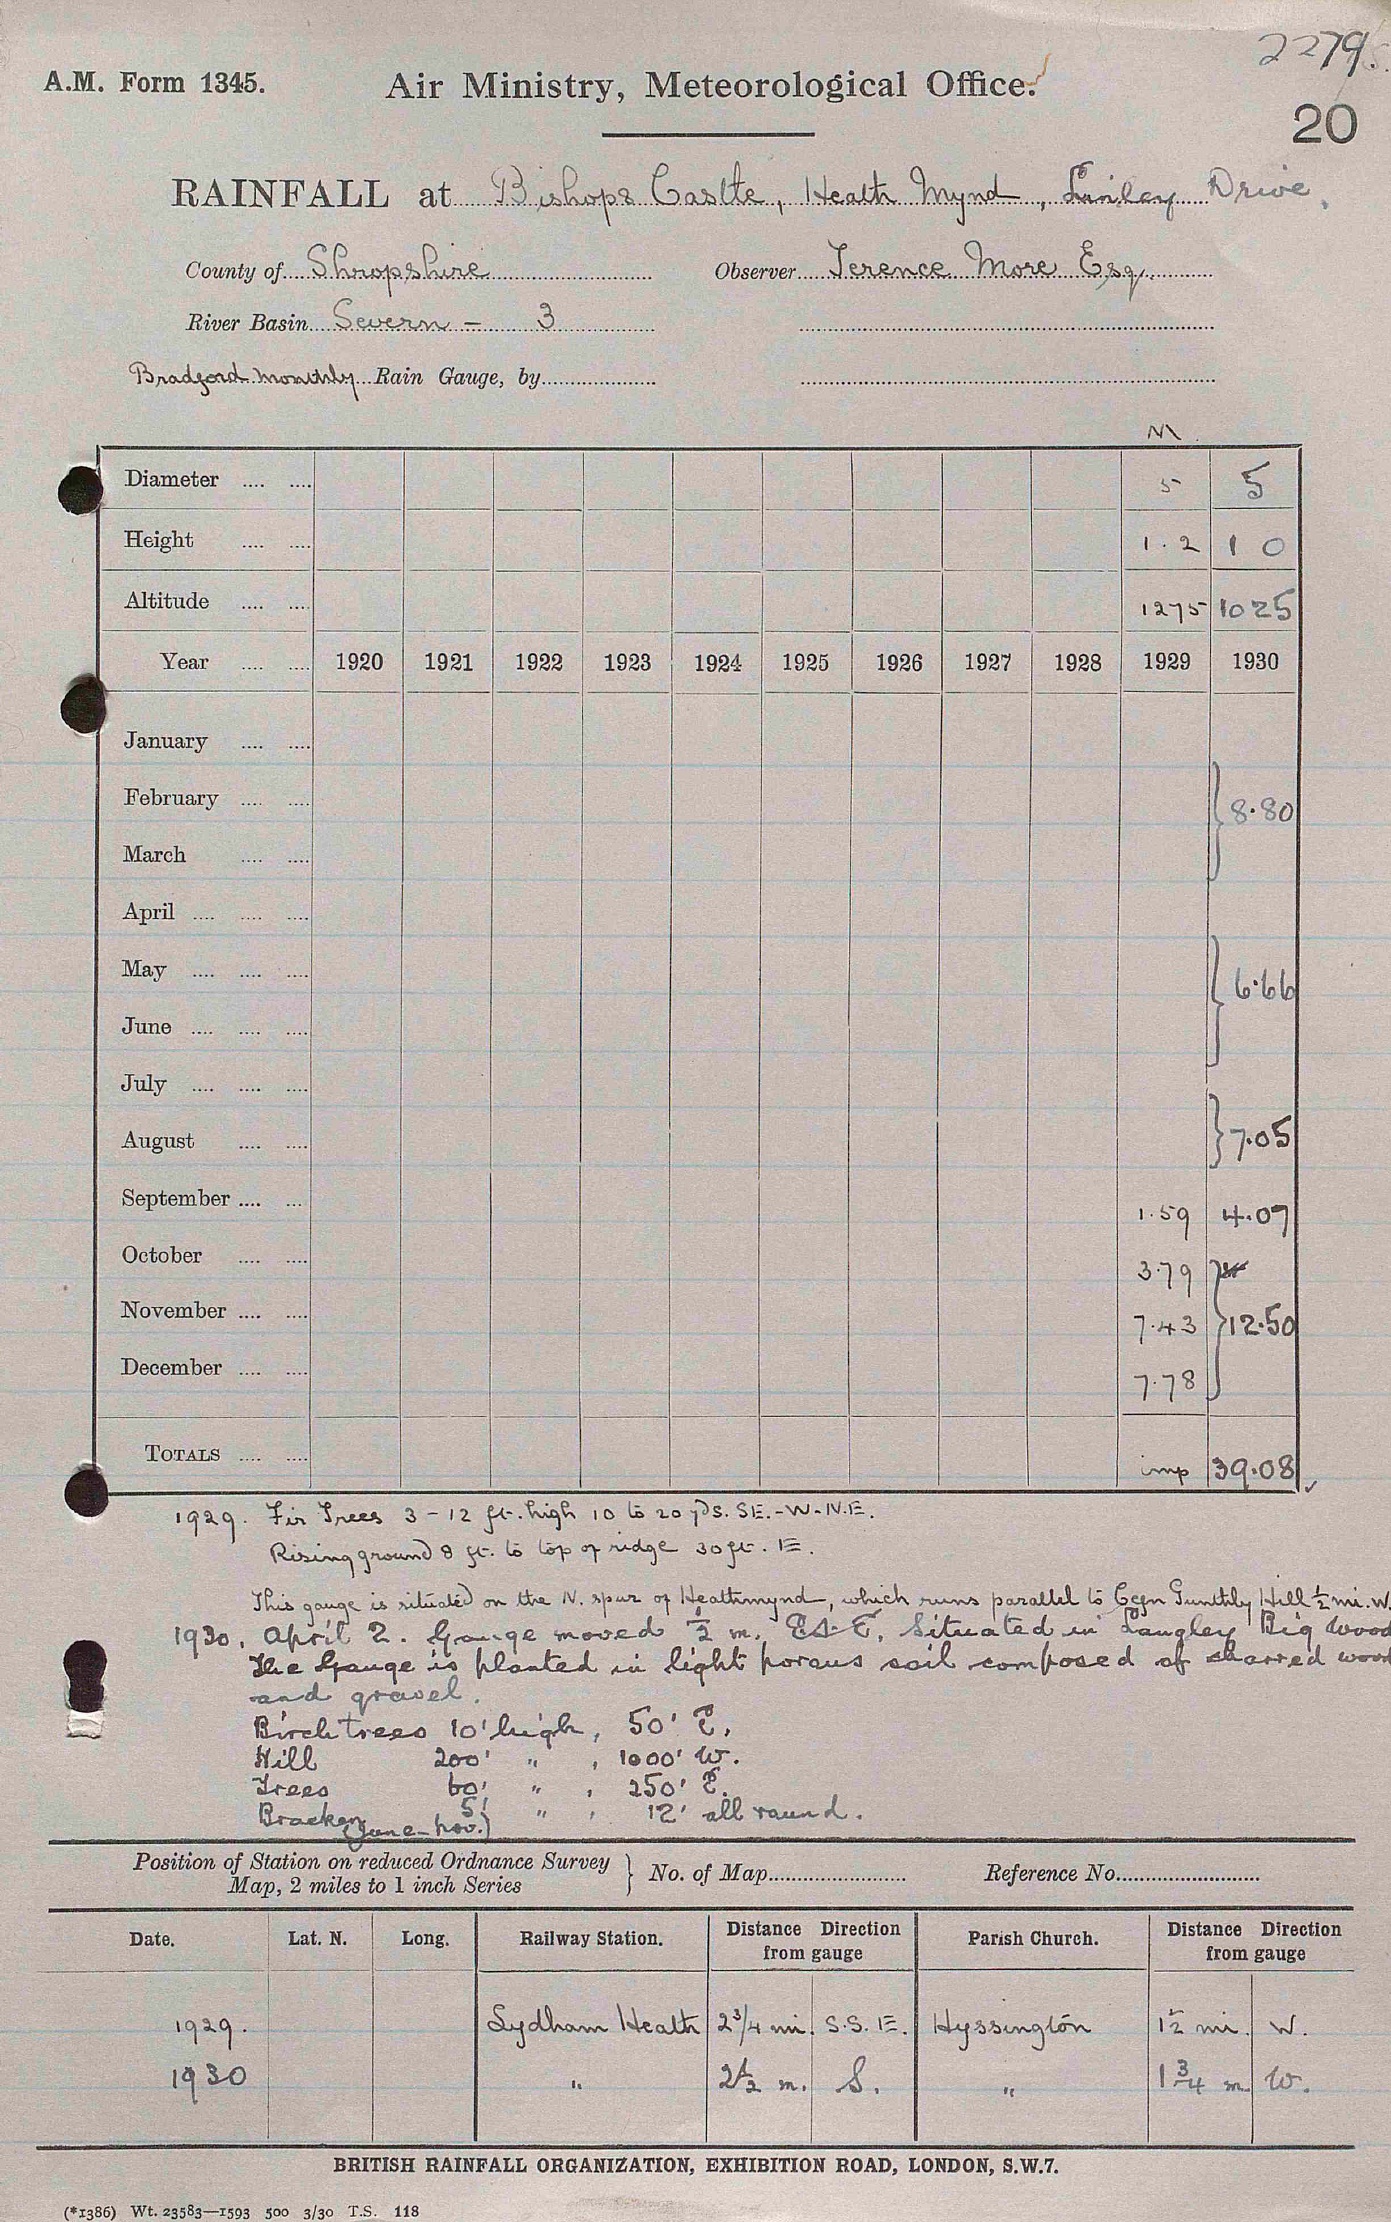 2279
A.M. Form 1345.
Air Ministry, Meteorological Office.
20
RAINFALL at Bishops Castle, Heath Mynd, Linley Drive.
County of Shropshire Observer Terence More Esq.
River Basin Severn - 3
Bradford monthly Rain Gauge, by
M
Diameter .... .... 5 5
Height .... .... 1.2 1 0
Altitude .... .... 1275 1025
Year .... .... 1920 1921 1922 1923 1924 1925 1926 1927 1928 1929 1930
January .... ....
February .... .... } 8.80
March .... ....
April .... .... ....
May .... .... .... } 6.66
June .... .... ....
July .... .... ....
August .... .... } 7.05
September .... .... 1.59 4.07
October .... .... 3.79
November .... .... 7.43 } 12.50
December .... .... 7.78
TOTALS .... .... imp 39.08 ✓
1929. Fir Trees 3 - 12 ft. high 10 to 20 yds. SE.-W-N.E.
Rising ground 8 ft. to top of ridge 30 ft. E.
This gauge is situated on the N. spur of Heathmynd, which runs parallel to Cefn Gunthly Hill ½ mi. W.
1930. April 2. Gauge moved ½ m. Situated in Langley Big Wood
The Gauge is planted in light porous soil composed of charred wood
and gravel.
Birch trees 10' high, 50' E.
Hill 200' " , 1000' W.
Trees 60' " , 250' E.
Bracken 5' " , 12' all round.
(June - Nov.)
Position of Station on reduced Ordnance Survey
Map, 2 miles to 1 inch Series } No. of Map Reference No.
Date. Lat. N. Long. Railway Station. Distance Direction from gauge Parish Church. Distance Direction from gauge
1929. Lydham Heath 2¾ mi. S.S.E. Hyssington 1½ mi. W.
1930 " 2½ m. S. " 1¾ m. W.
BRITISH RAINFALL ORGANIZATION, EXHIBITION ROAD, LONDON, S.W.7.
(*1386) Wt. 23583—1593 500 3/30 T.S. 118